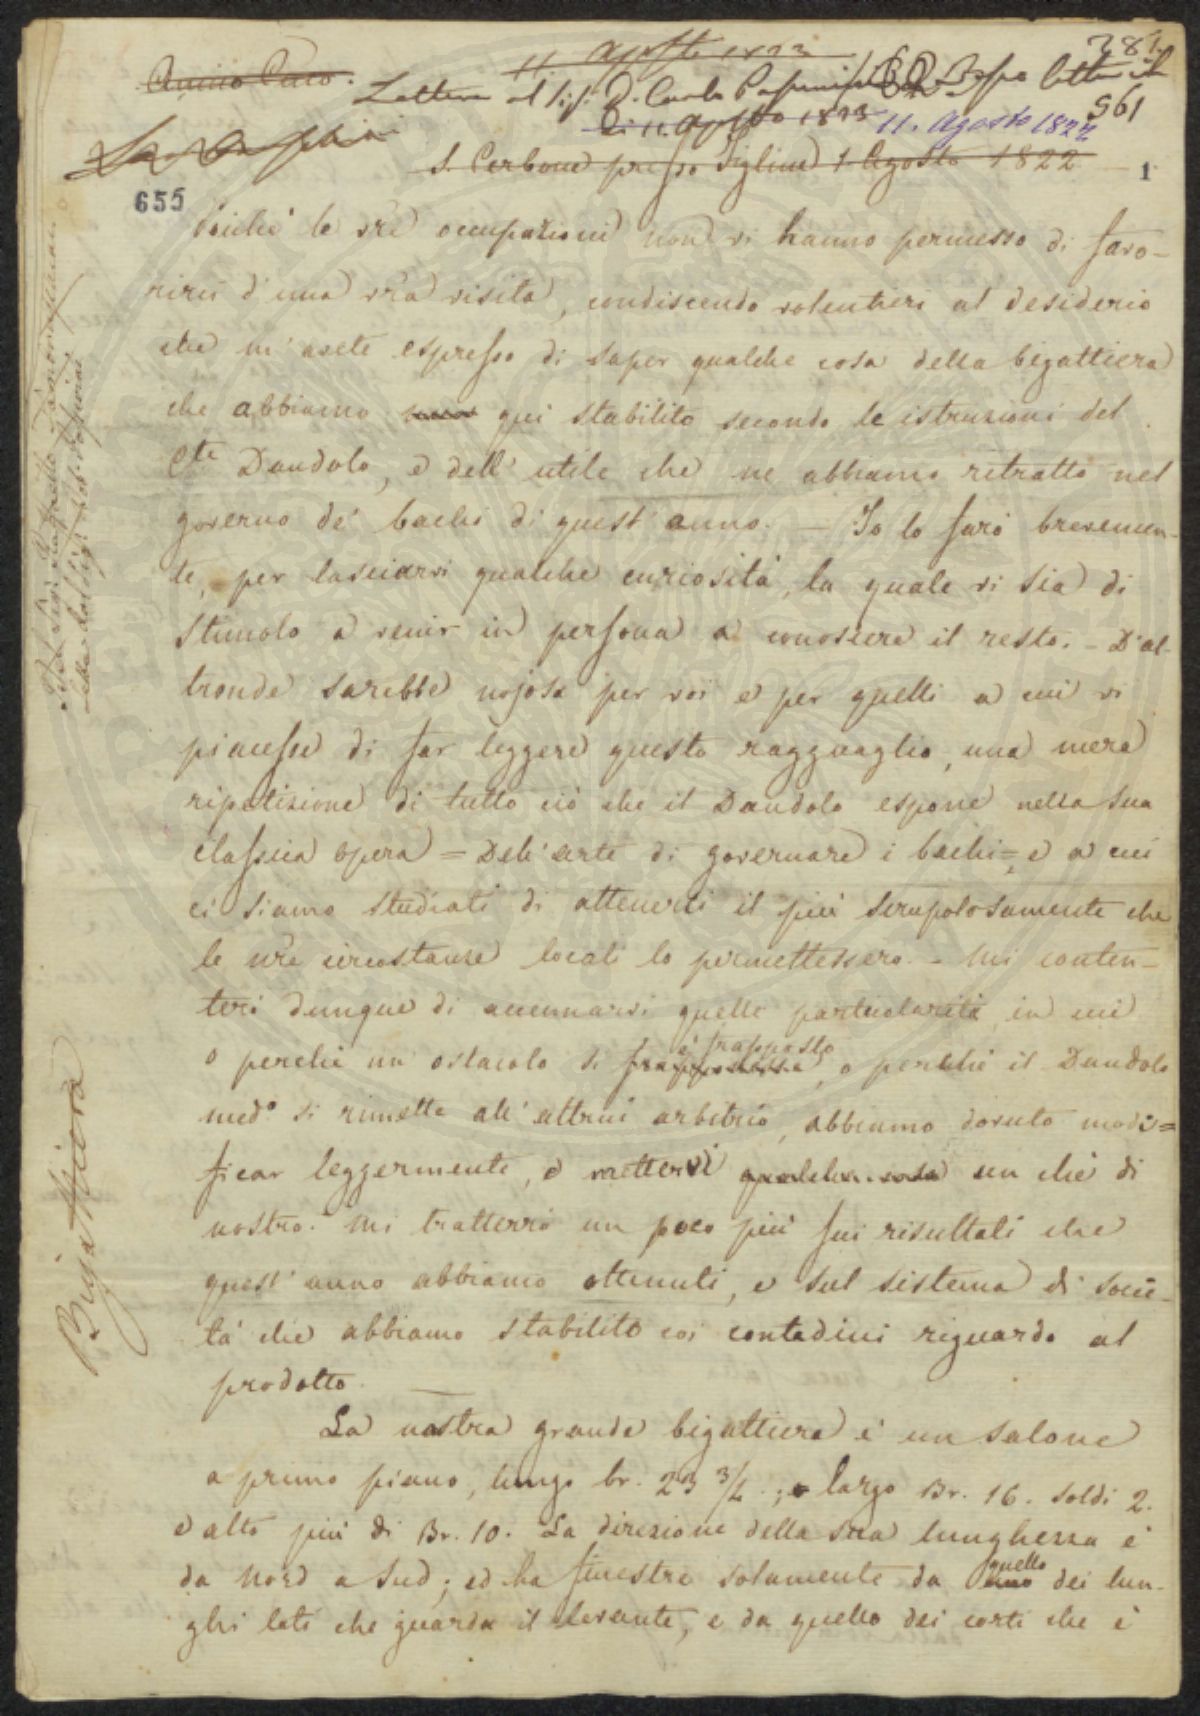 11 Agosto 1823
381
Amico Caro.
Lettera al Sig. D. Carlo Passerini
561
Di 11 Agosto 1823 11. Agosto 1822
S. Cerbone presso Figline 1 Agosto 1822
1
655
Poiché le vr̃e occupazioni non vi hanno permesso di favo-
rirci d'una vr̃a visita, condiscendo volentieri al desiderio
che m'avete espresso di saper qualche cosa della bigattiera
che abbiamo qui stabilito secondo le istruzioni del
Cte Dandolo, e dell'utile che ne abbiamo ritratto nel
governo de' bachi di quest'anno. — Io lo farò brevemen-
te, per lasciarvi qualche curiosità, la quale vi sia di
stimolo a venir in persona a conoscere il resto. – D'al-
tronde sarebbe nojosa per voi e per quelli a cui vi
piacesse di far leggere questo ragguaglio, una mera
ripetizione di tutto ciò che il Dandolo espone nella sua
classica opera = Dell'arte di governare i bachi =, e a cui
ci siamo studiati di attenerci il più scrupolosamente che
le nr̃e circostanze locali lo permettessero. – Mi conten-
terò dunque di accennarvi quelle particolarità in cui
o perché un ostacolo si frapponesse è frapposto, o perché il Dandolo
medo si rimette all'altrui arbitrio, abbiamo dovuto modi=
ficar leggermente, e mettervi qualche cosa un chè di
nostro. Mi tratterrò un poco più sui risultati che
quest'anno abbiamo ottenuti, e sul sistema di socie-
tà che abbiamo stabilito coi contadini riguardo al
prodotto. —
La nostra grande bigattiera è un salone
a primo piano, lungo br. 23 3/4.; e largo Br. 16. soldi 2.
e alto più di Br. 10. La direzione della sua lunghezza è
da Nord a Sud; ed ha finestre solamente da uno quello dei lun-
ghi lati che guarda il Levante, e da quello dei corti che è
Bigattiera